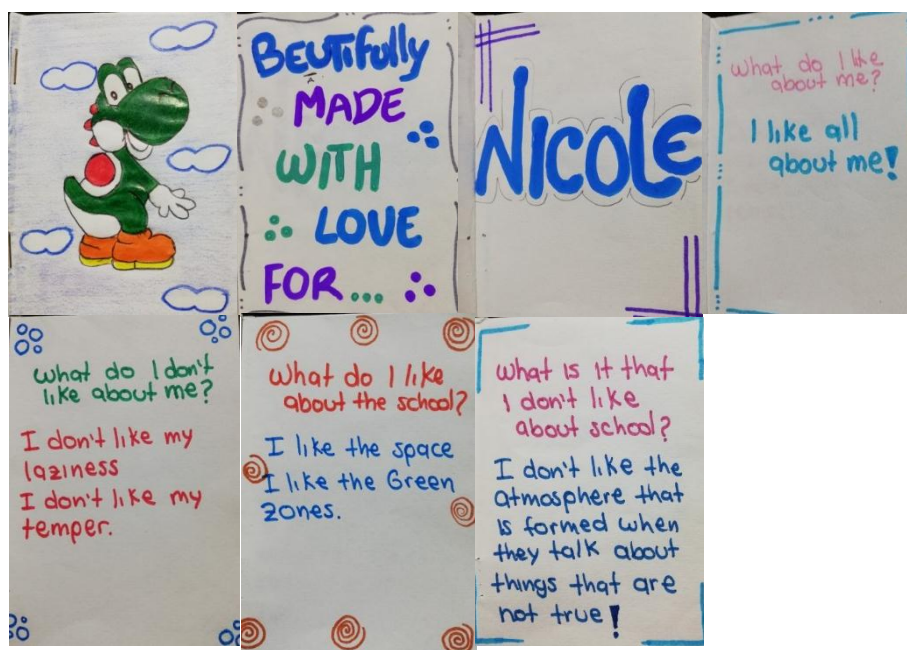 BEUTifully
MADE
WITH
LOVE
FOR...
NICOLE
What do I like
about me?
I like all
about me!
What do I don't
like about me?
I don't like my
laziness
I don't like my
temper.
What do I like
about the school?
I like the space
I like the Green
zones.
What is it that
I don't like
about school?
I don't like the
atmosphere that
is formed when
they talk about
things that are
not true!